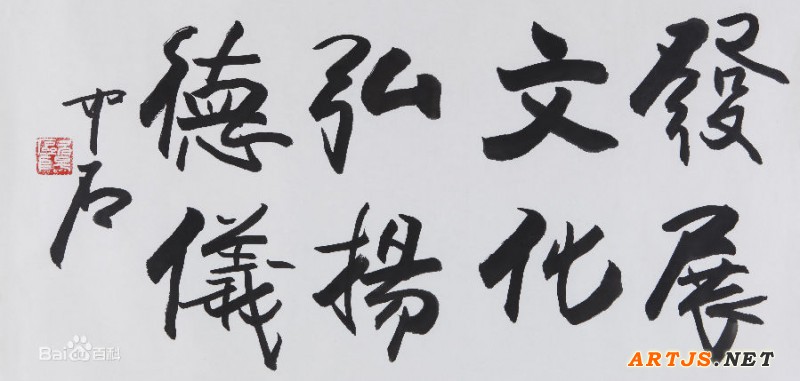 發展
文化
弘揚
德儀
中石
Bai百科
ARTJS.NET